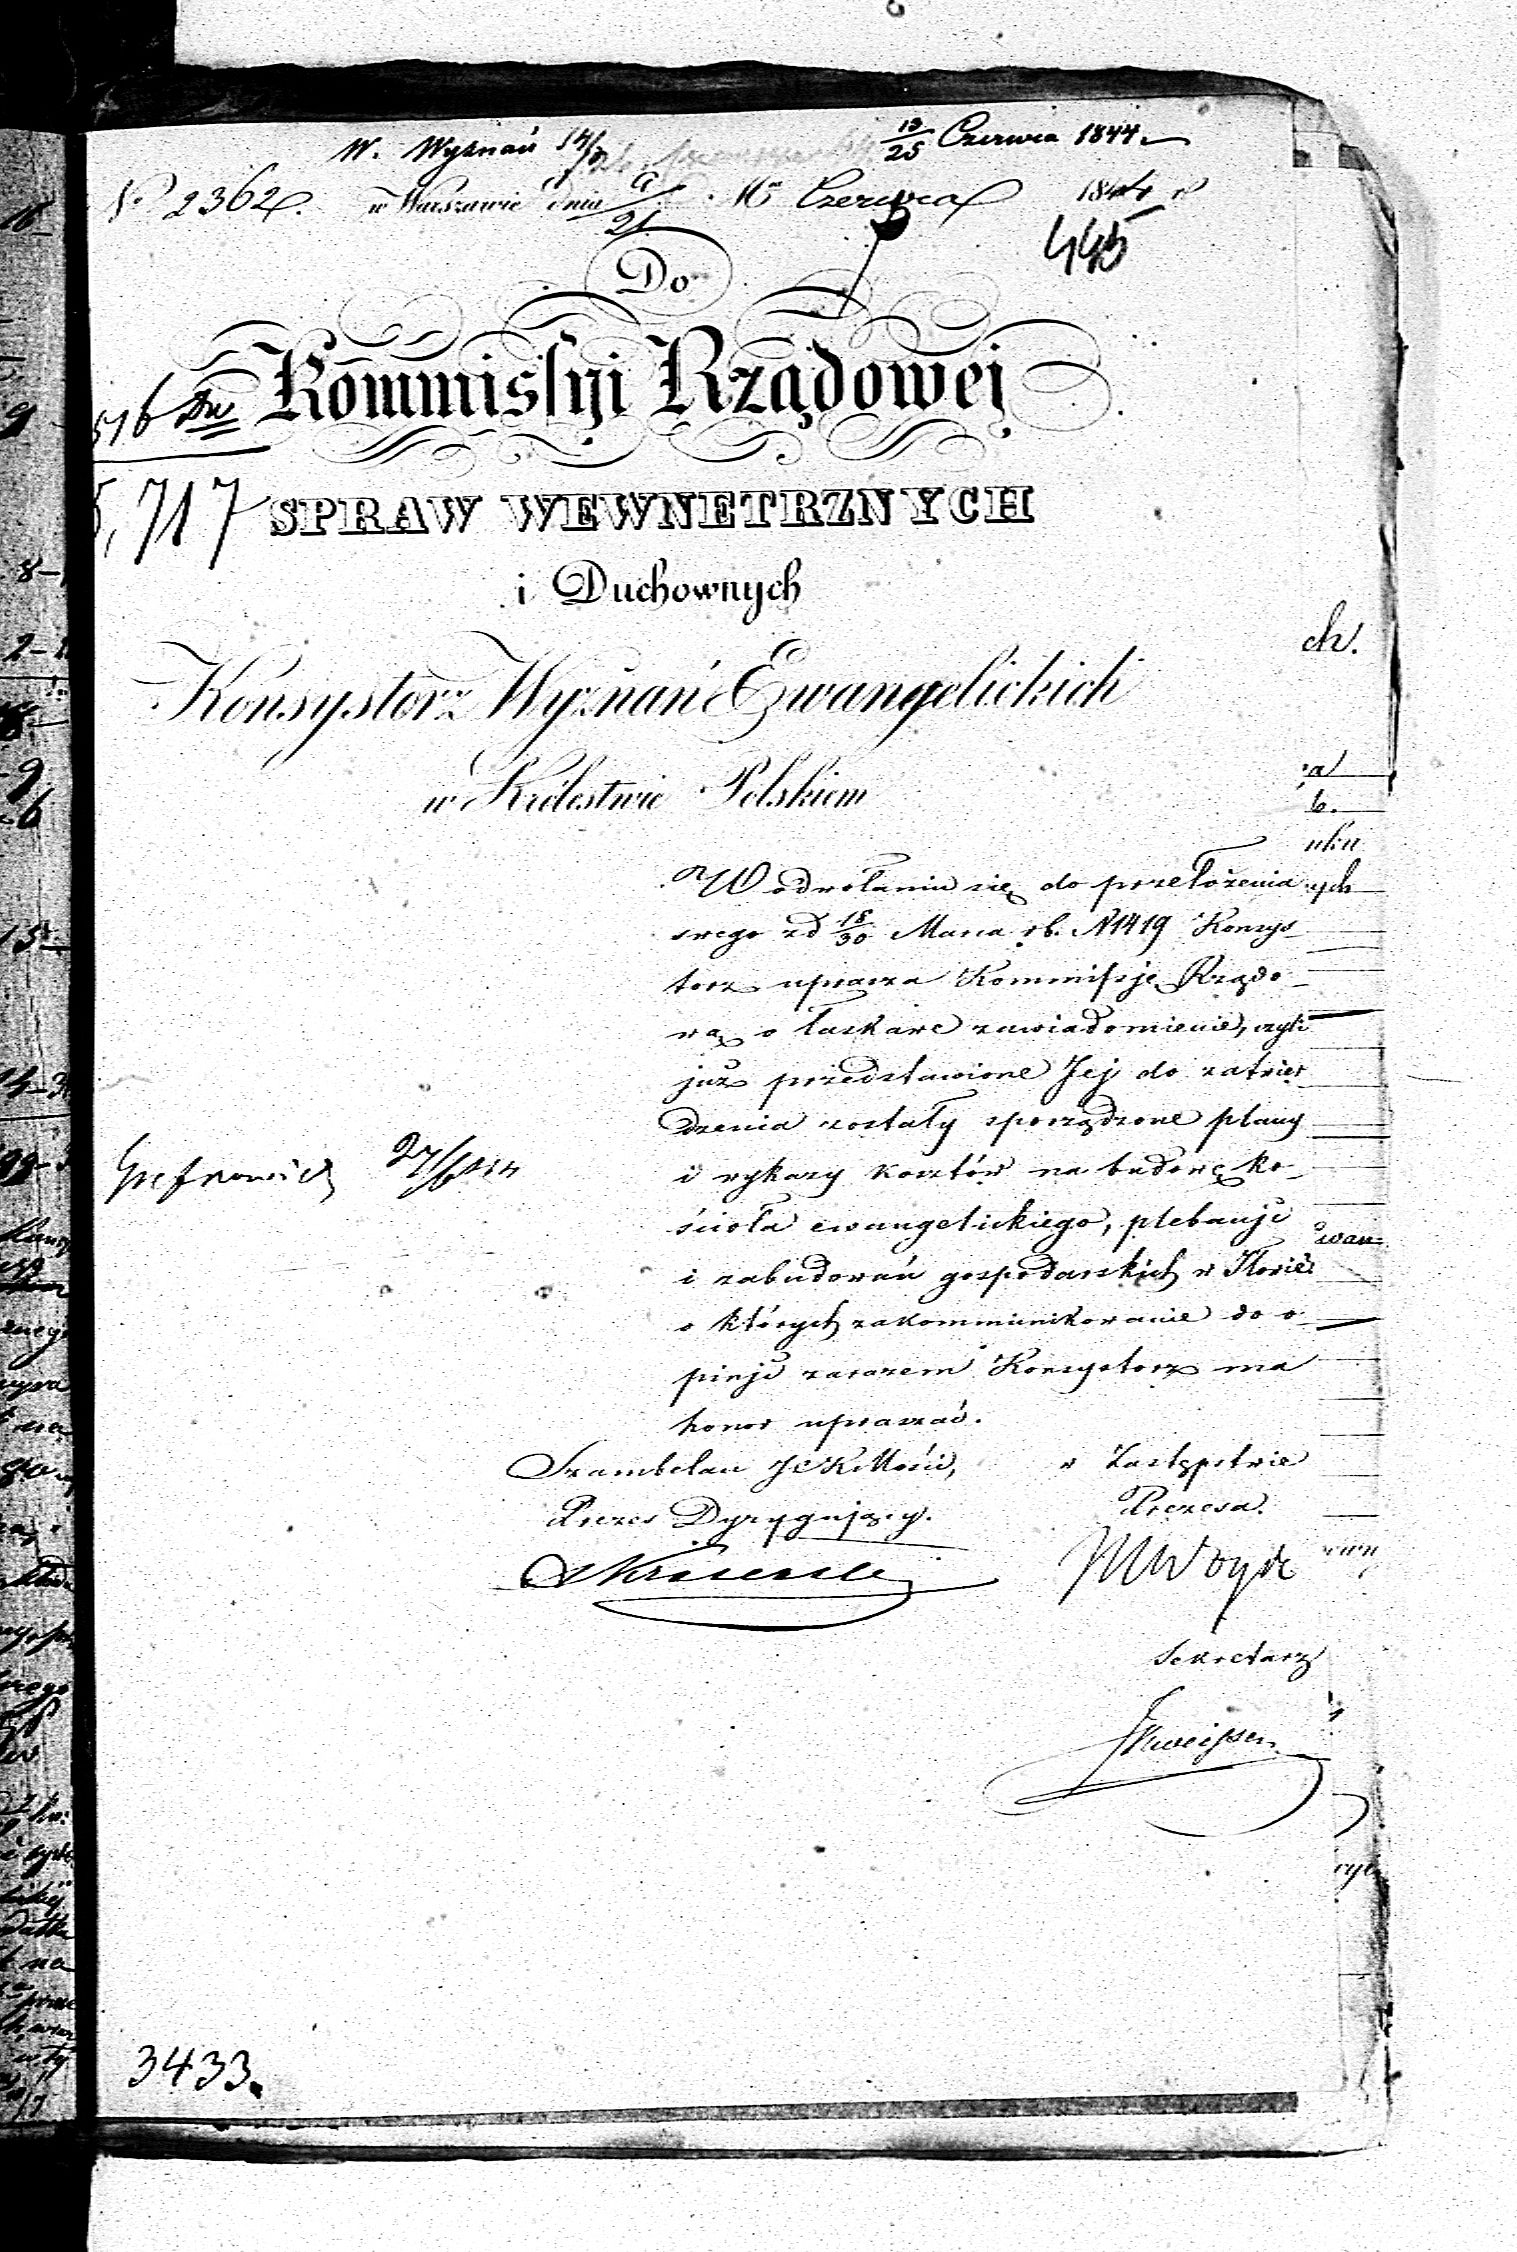 W. Wyznań 14/ 13/25 Czerwca 1844.
N. 2362. w Warszawie dnia 9/21 Mca Czerwca 1844 r
445
Do
Kommissyi Rządowej
SPRAW WEWNETRZNYCH
5,717
i Duchownych
Konsystorz Wyznań Ewangelickich
w Królestwie Polskiem
W odwołaniu się do przełożenia
swego zd 18/30 Marca rb. N 1419 Konsys-
torz uprasza Kommissje Rządo-
wą o łaskawe zawiadomienie, czyli
już przedstawione Jej do zatwier
dzenia zostały sporządzone plany
i wykazy kosztów na budowę ko-
ścioła ewangelickiego, plebanji
i zabudowań gospodarskich w
o których zakommunikowanie do o-
pinji zarazem Konsystorz ma
honor upraszać.
27/6
Szambelan JCKMości, w Zastępstwie
Prezes Dyrygujący. Prezesa.
Sekretarz
3433.